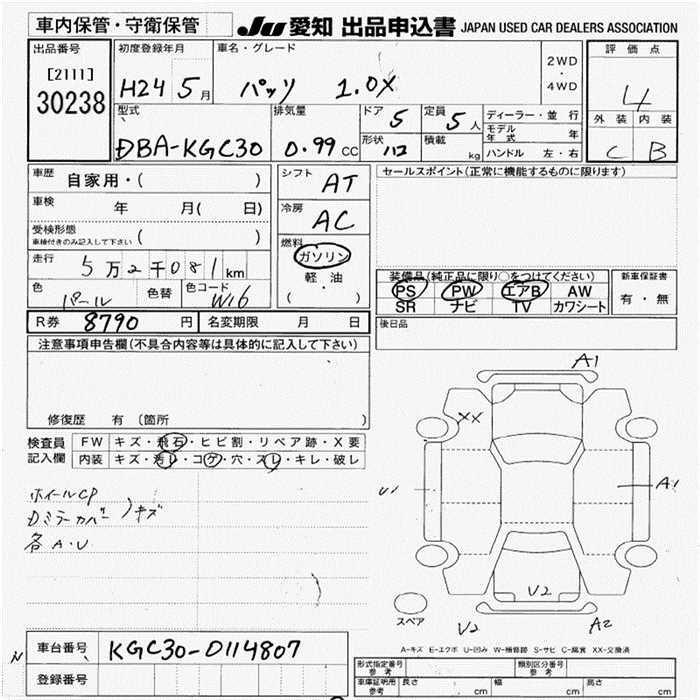 車内保管・守衛保管 JU 愛知 出品申込書 JAPAN USED CAR DEALERS ASSOCIATION
出品番号 初度登録年月 車名・グレード 評価点
[2111] 2WD
・
30238 H24 5月 パッソ 1.0X 4WD 4
型式 排気量 ドア 5 定員 5人 ディーラー・並行 外装 内装
モデル年式 年
DBA-KGC30 0.99cc 形状 積載 kg ハンドル 左・右 C B
車歴 自家用・( ) シフト AT セールスポイント(正常に機能するものに限ります)
車検 年 月( 日) 冷房 AC
受検形態
車検付きのみ記入して下さい ( ) 燃料
走行 5万2千081km ガソリン
軽・油
( ・ )
装備品(純正品に限り○をつけてください) 新車保証書
色 パール 色替 色コード W16 PS PW エアB AW 有・無
SR ナビ TV カワシート
R券 8790円 名変期限 月 日 後日品
注意事項申告欄(不具合内容等は具体的に記入して下さい)
A1
XX
修復歴 有 (箇所 )
検査員 FW キズ・飛石・ヒビ割・リペア跡・X要
記入欄 内装 キズ・汚レ・コゲ・穴・スレ・キレ・破レ
U1 A1
ホイールCP
Dミラーカバー キズ
各A・U
U2
スペア U2 A2
A-キズ E-エクボ U-凹み W-補修跡 S-サビ C-腐食 XX-交換済
N 車台番号 KGC30-0114807
登録番号
型式指定番号 参考 類別区分番号 参考
車庫証明用 参考 長さ cm 幅 cm 高さ cm